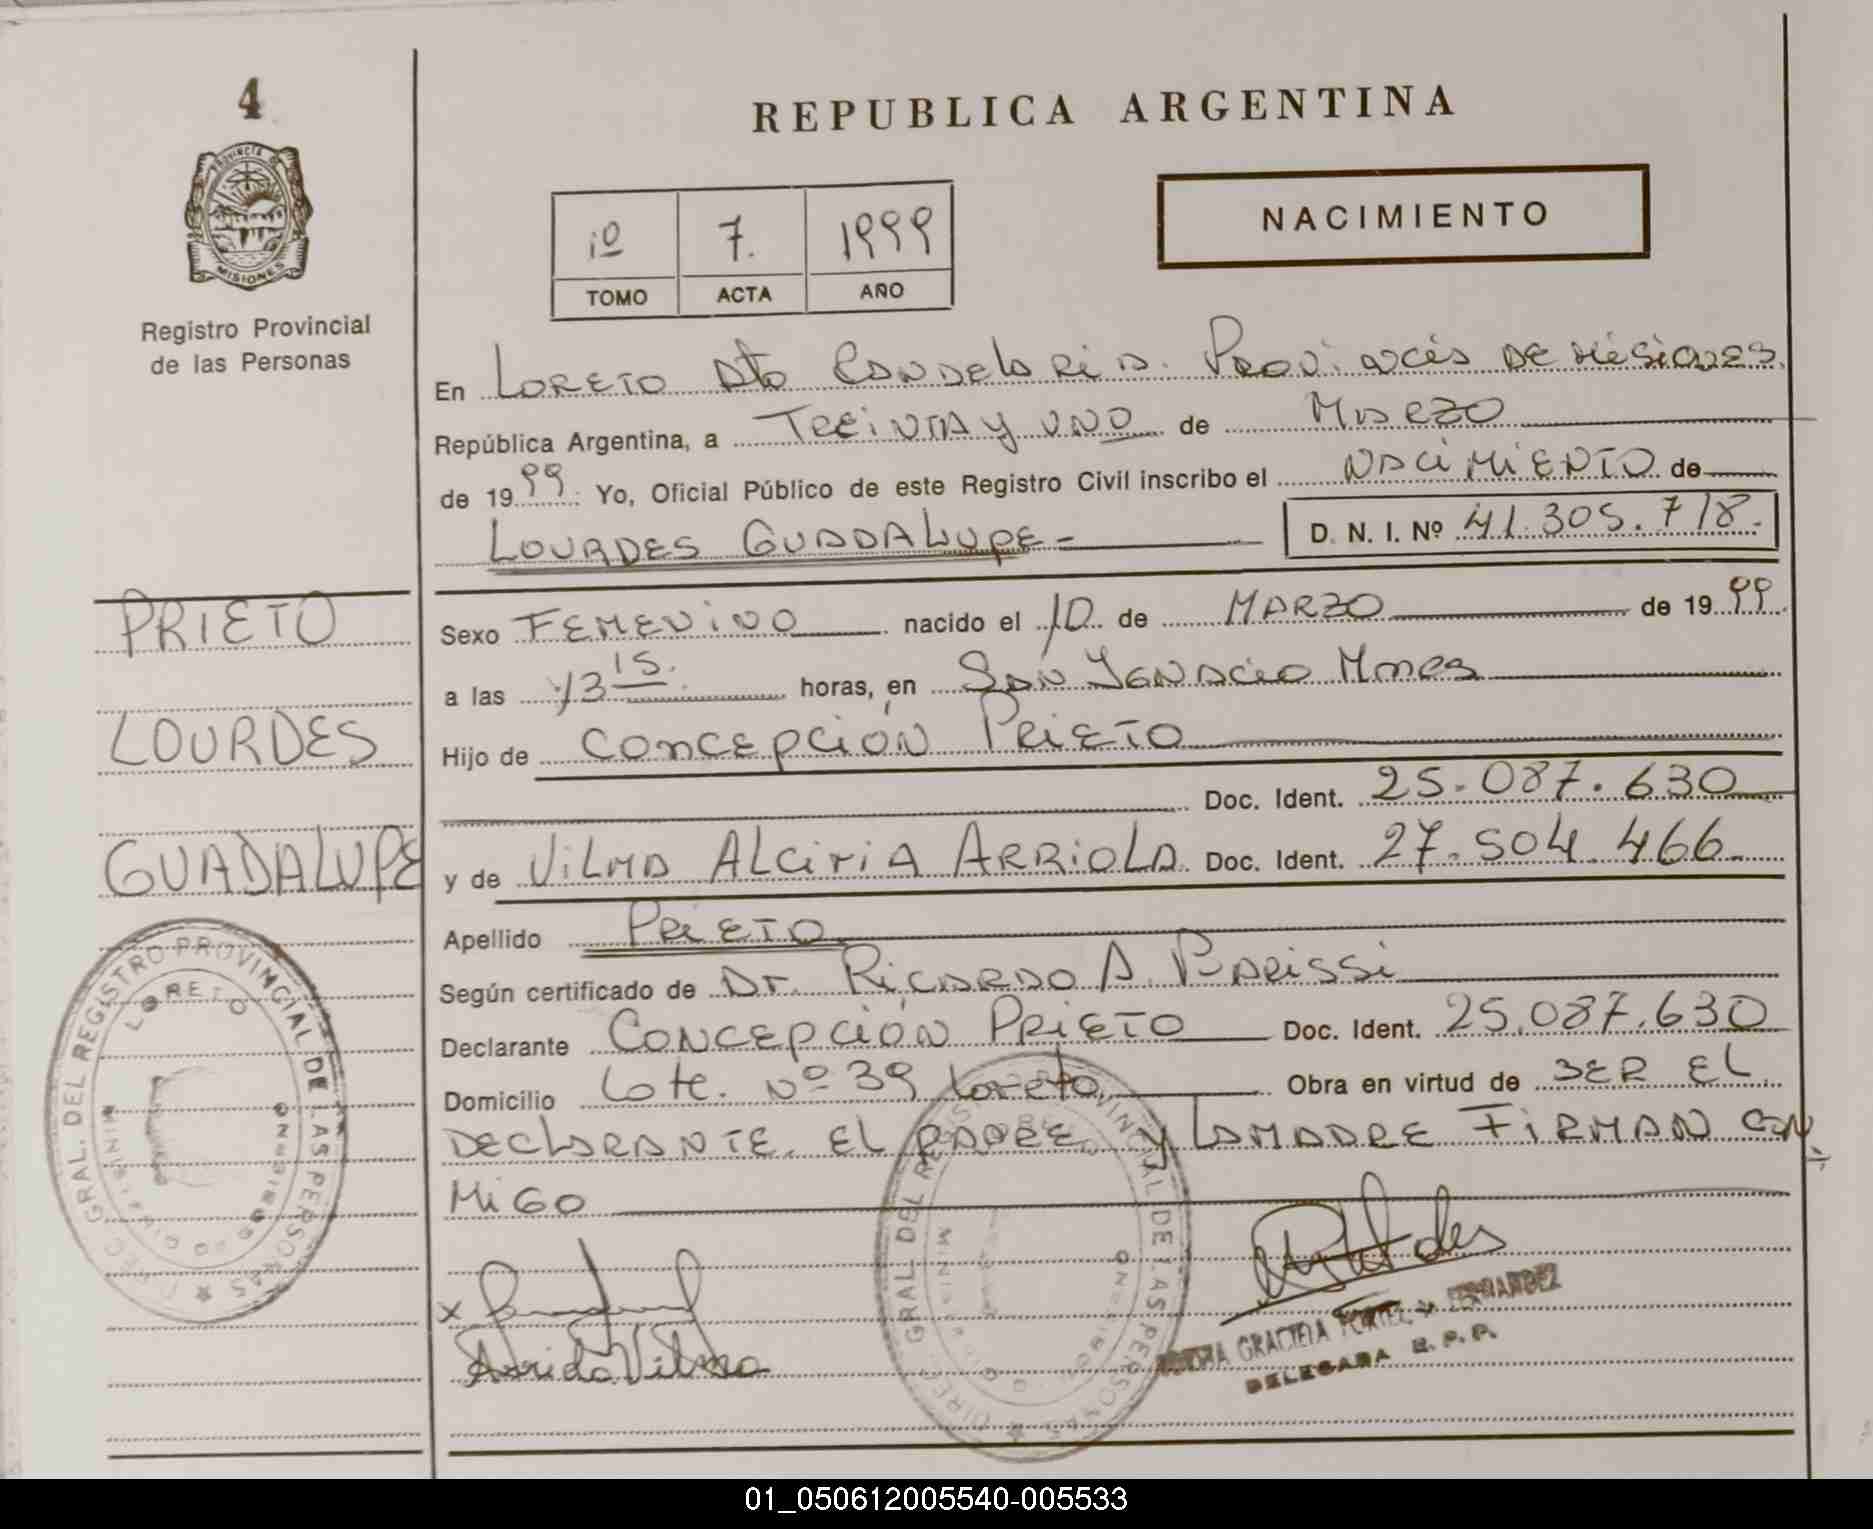 4
PROVINCIA DE
MISIONES
Registro Provincial
de las Personas
REPUBLICA ARGENTINA
1º 7. 1999
TOMO ACTA AÑO
NACIMIENTO
En LORETO Dto CANDELARIA. PROVINCIA DE MISIONES.
República Argentina, a TREINTA Y UNO de MARZO
de 1999. Yo, Oficial Público de este Registro Civil inscribo el NACIMIENTO de
LOURDES GUADALUPE- D. N. I. Nº 41.305.718.
PRIETO
LOURDES
GUADALUPE
Sexo FEMENINO nacido el 10 de MARZO de 1999.
a las 13 15. horas, en SAN IGNACIO Mnes
Hijo de CONCEPCIÓN PRIETO
Doc. Ident. 25.087.630
y de VILMA ALCIRIA ARRIOLA Doc. Ident. 27.504.466
Apellido PRIETO
Según certificado de Dr. RICARDO A. PARISSI
Declarante CONCEPCIÓN PRIETO Doc. Ident. 25.087.630
Domicilio Lote. Nº 39 Loreto, Obra en virtud de SER EL
DECLARANTE, EL PADRE Y LA MADRE FIRMAN CON
MIGO
GRAL. DEL REGISTRO PROVINCIAL DE LAS PERSONAS
LORETO
DIREC. GRAL. DEL REGISTRO PROVINCIAL DE LAS PERSONAS
x
Arriola Vilma
GRACIELA FERNANDEZ
DELEGADA R. P. P.
01_050612005540-005533